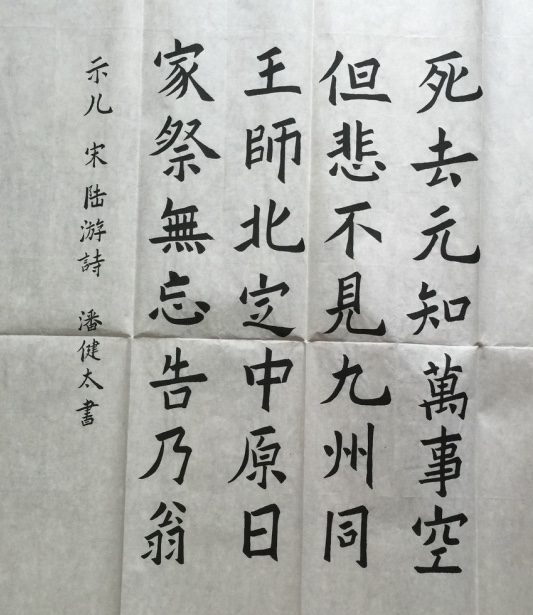 死去元知萬事空
但悲不見九州同
王師北定中原日
家祭無忘告乃翁
示儿 宋 陆游詩 潘健太書